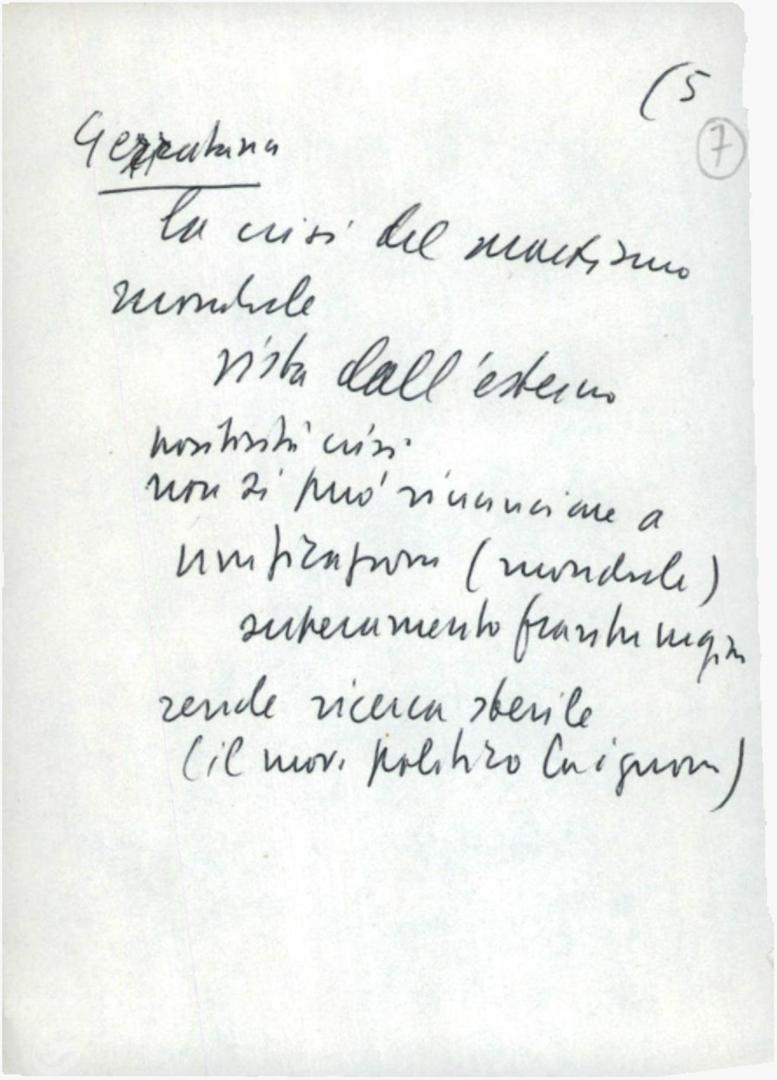 (5
7
Gerratana
la crisi del marxismo
mondiale
vista dall'esterno
positività crisi
non si può rinunciare a
unificazione (mondiale)
superamento
rende ricerca sterile
(il mov. politico la ignora)